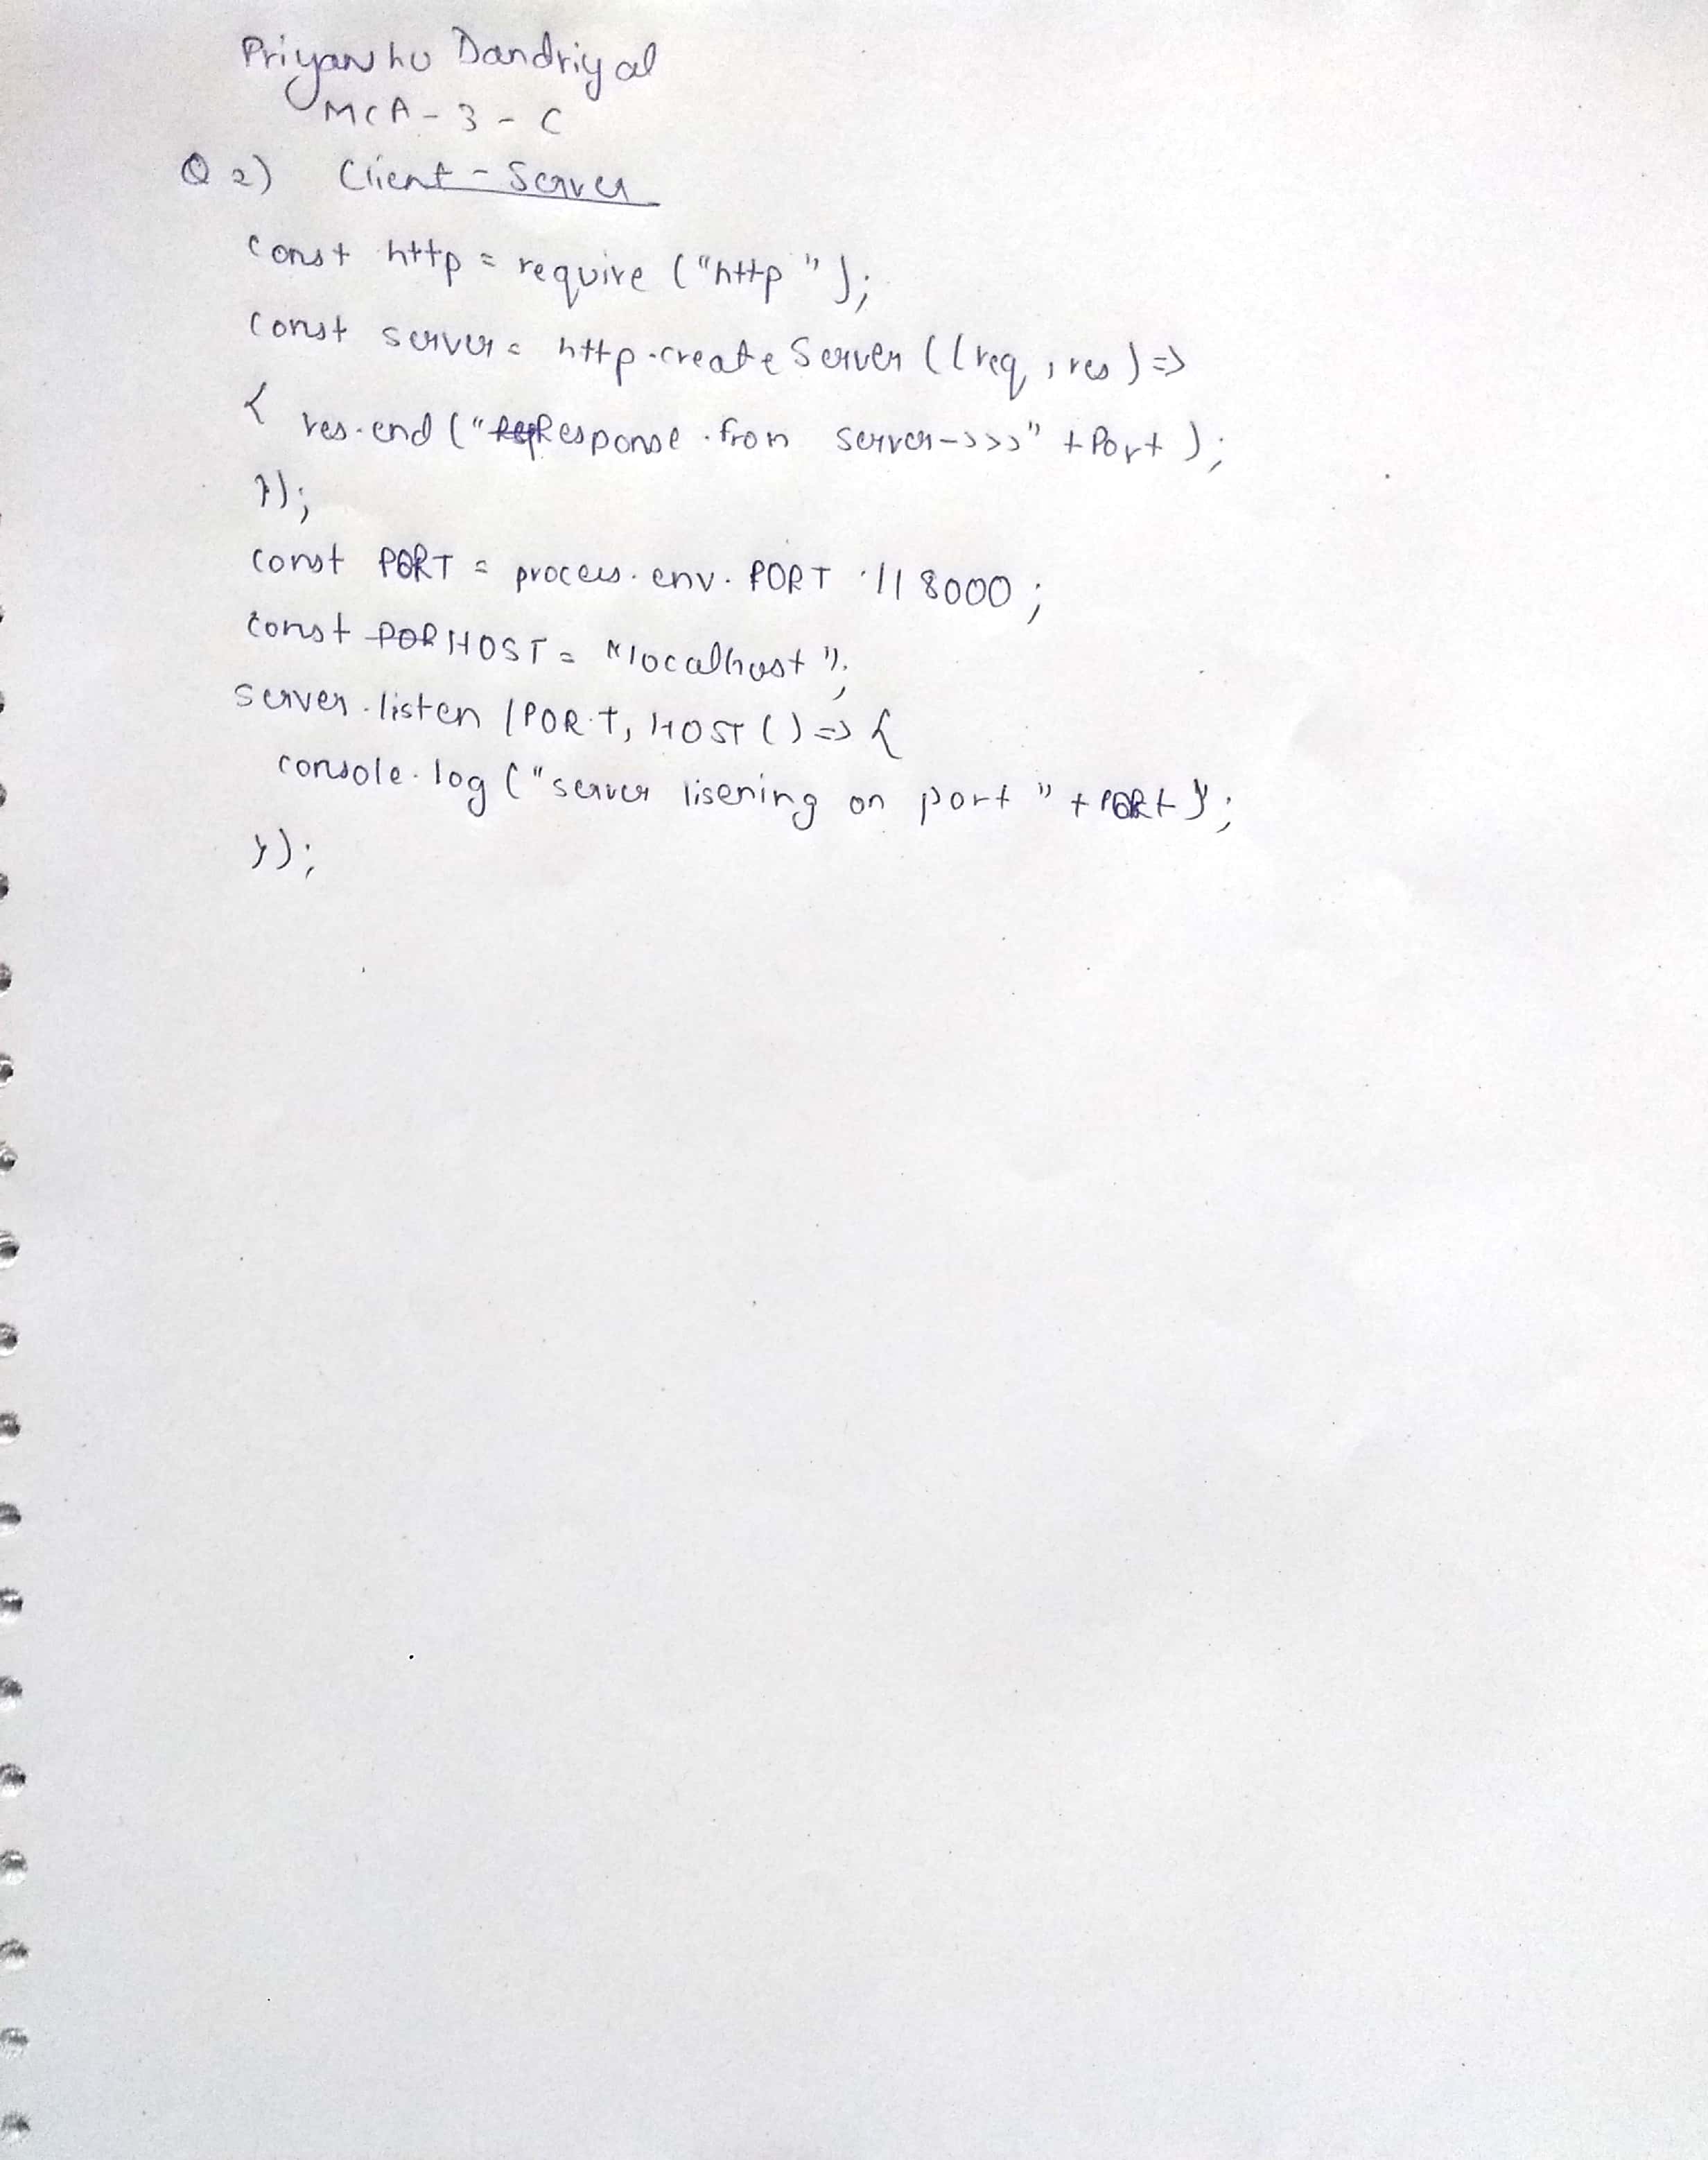 Priyanshu Dandriyal
MCA-3-C
Q2) Client-Server
const http = require ("http");
const server = http.createServer ((req, res) =>
{ res.end ("Response from server->>>" + Port );
});
const PORT = process.env.PORT || 8000;
const HOST = "localhost";
server.listen (PORT, HOST () => {
console.log ("server lisening on port " + PORT);
});